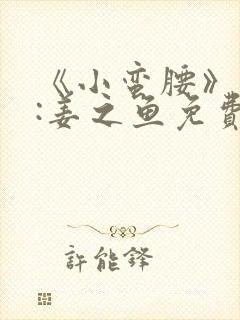 《小蛮腰》
:姜之鱼免費
許能鋒